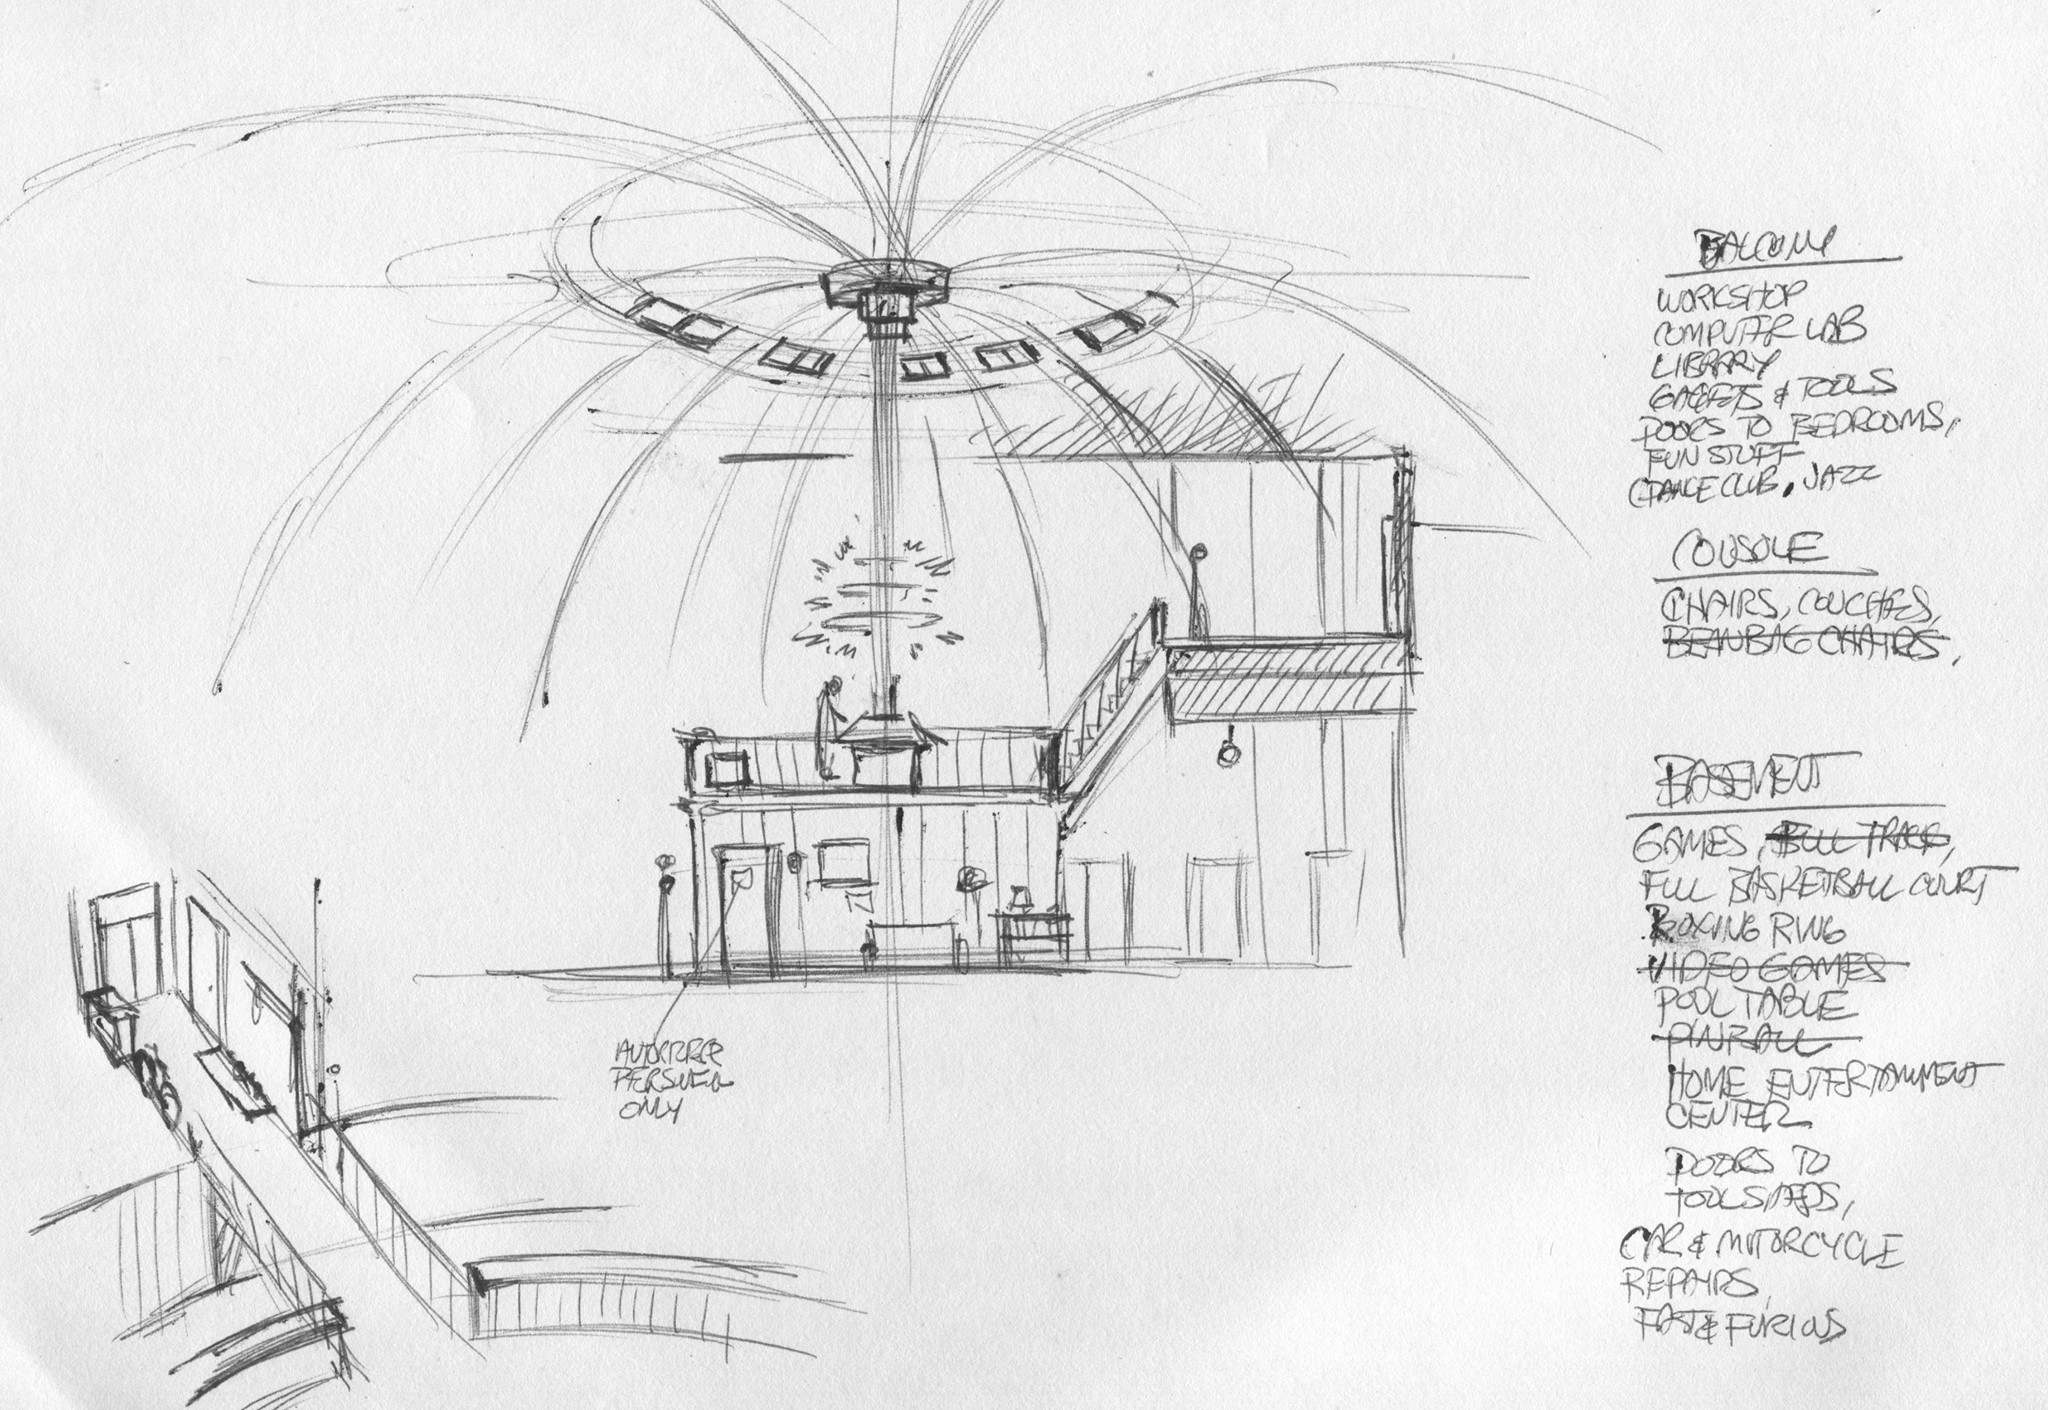 BALCONY
WORKSHOP
COMPUTER LAB
LIBRARY
GADGETS & TOOLS
DOORS TO BEDROOMS,
FUN STUFF
DANCE CLUB, JAZZ
CONSOLE
CHAIRS, COUCHES,
BEANBAG CHAIRS,
BASEMENT
GAMES,
FULL BASKETBALL COURT
BOXING RING
VIDEO GAMES
POOL TABLE
PINBALL
HOME ENTERTAINMENT
CENTER
DOORS TO
CAR & MOTORCYCLE
REPAIRS,
FAST & FURIOUS
ONLY